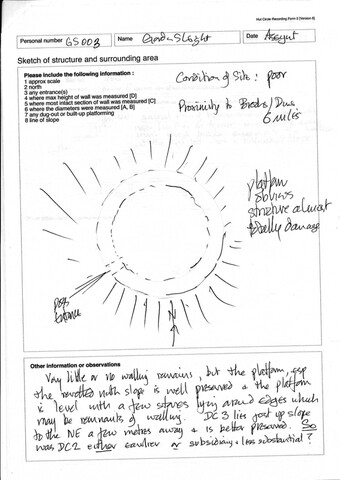 Hut Circle Recording Form 2 [Version 4]
Personal number GS003 Name Gordon Sleight Date August
Sketch of structure and surrounding area
Please include the following information :
1 approx scale
2 north
3 any entrance(s)
4 where max height of wall was measured [D]
5 where most intact section of wall was measured [C]
6 where the diameters were measured [A, B]
7 any dug-out or built-up platforming
8 line of slope
Condition of Site : poor
Proximity to
6 miles
platform
obvious
structure almost
totally damage
poss
entrance
N
Other information or observations
Very little or no walling remains, but the platform, esp
the revetted north slope is well preserved & the platform
is level with a few stones lying around edges which
may be remnants of walling. DC3 lies just up slope
to the NE a few metres away & is better preserved. So
was DC2 either earlier or subsidiary & less substantial?